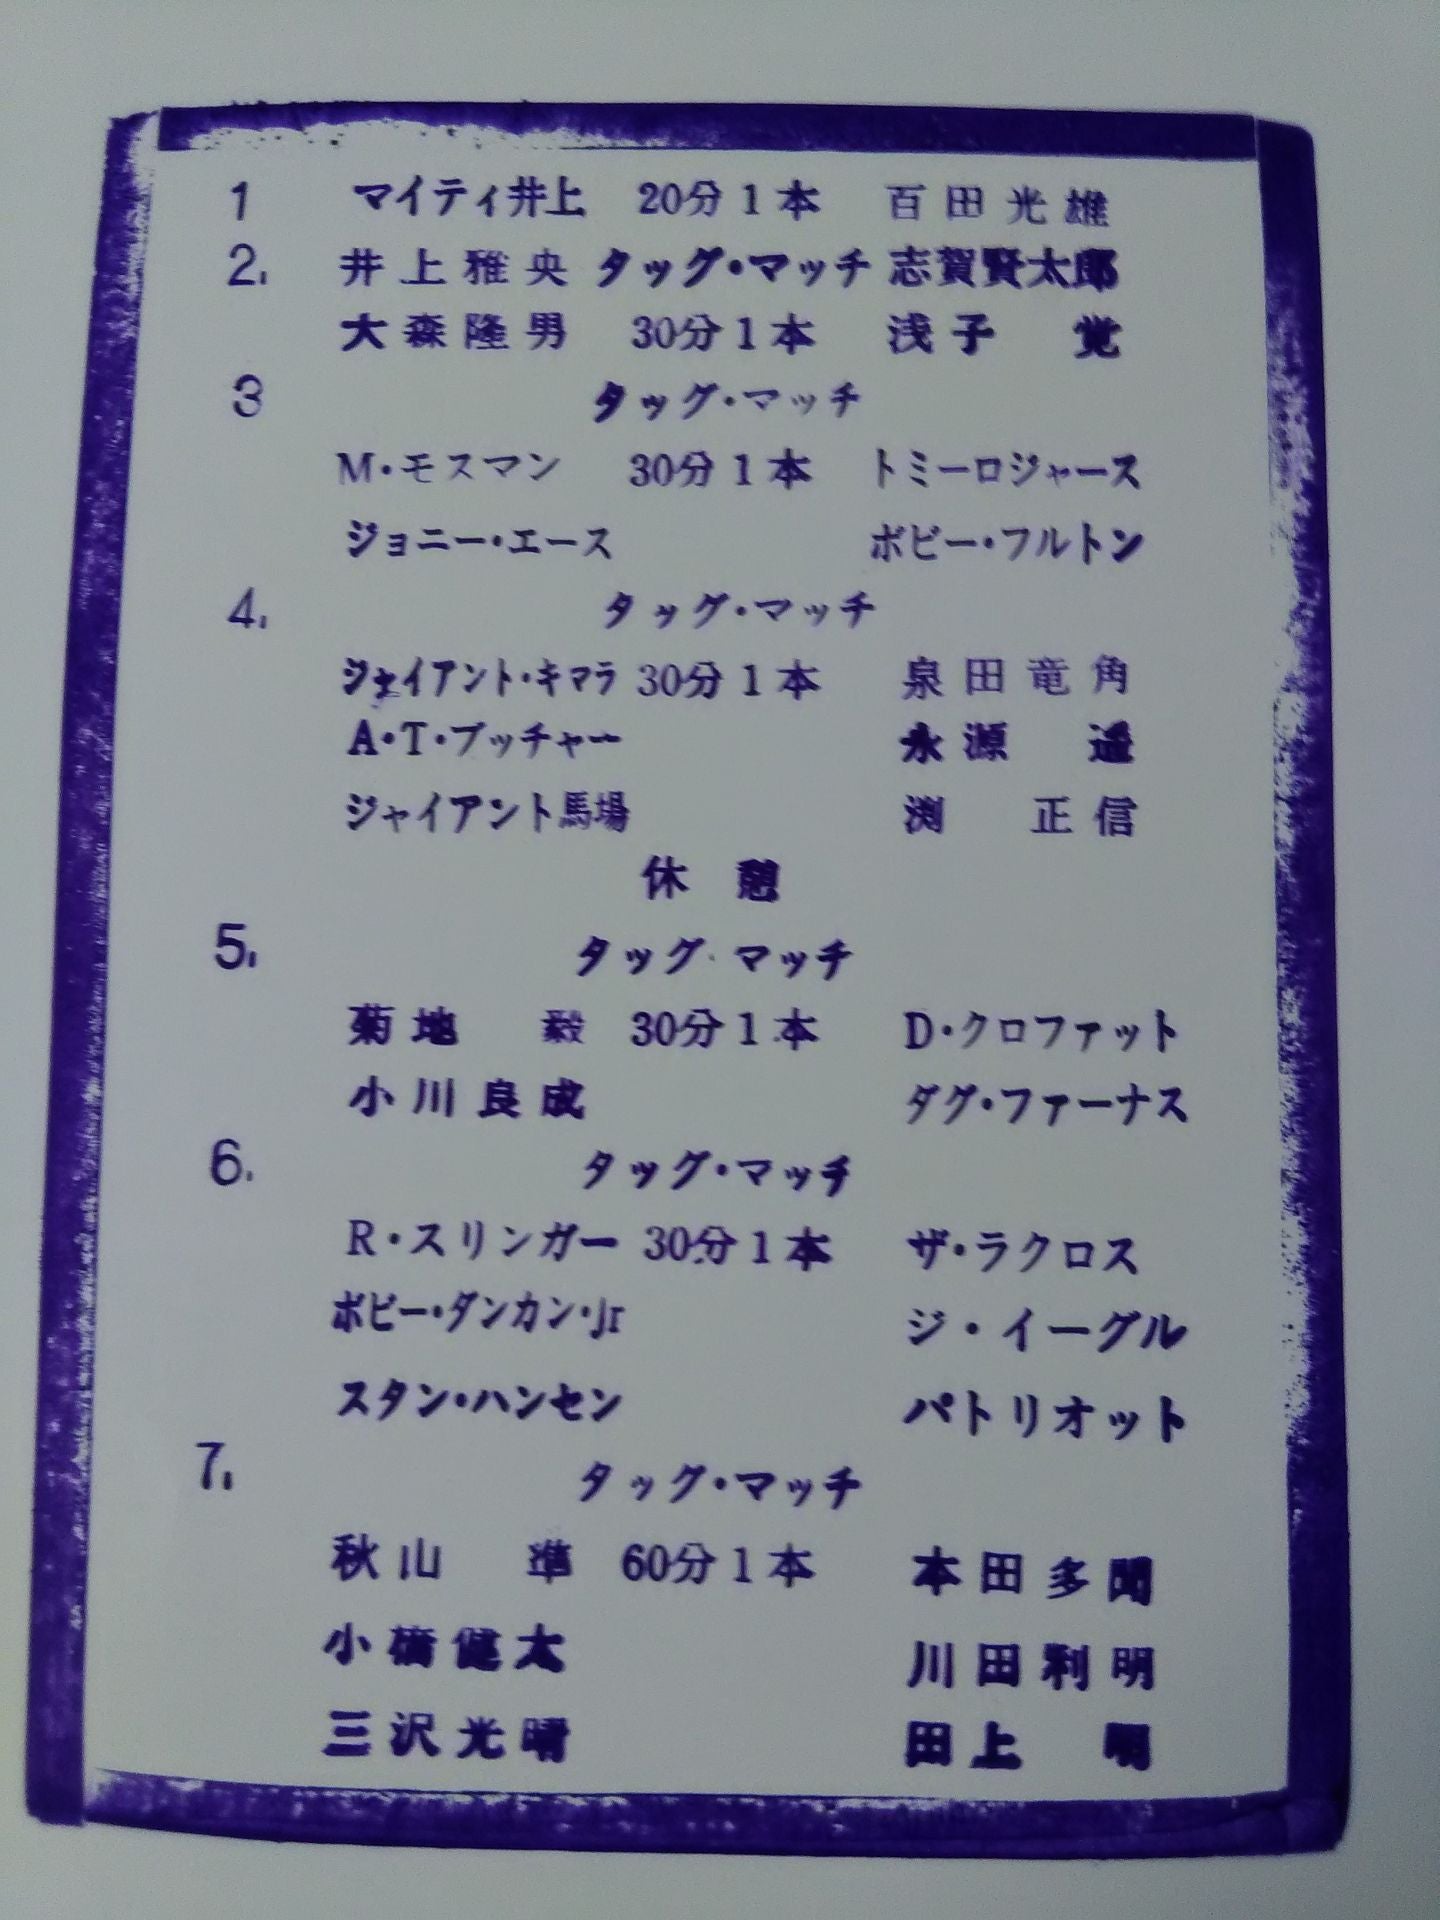 1 マイティ井上 20分1本 百田光雄
2. 井上雅央 タッグ・マッチ 志賀賢太郎
大森隆男 30分1本 浅子 覚
3 タッグ・マッチ
M・モスマン 30分1本 トミーロジャース
ジョニー・エース ボビー・フルトン
4. タッグ・マッチ
ジャイアント・キマラ 30分1本 泉田竜角
A・T・ブッチャー 永源 遥
ジャイアント馬場 渕 正信
休憩
5. タッグ・マッチ
菊地 毅 30分1本 D・クロファット
小川良成 ダグ・ファーナス
6. タッグ・マッチ
R・スリンガー 30分1本 ザ・ラクロス
ボビー・ダンカン・Jr ジ・イーグル
スタン・ハンセン パトリオット
7. タッグ・マッチ
秋山 準 60分1本 本田多聞
小橋健太 川田利明
三沢光晴 田上 明